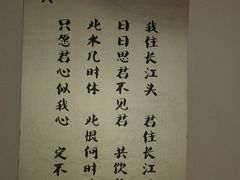 我住长江头 君住长江
日日思君不见君 共饮
此水几时休 此恨何时
只愿君心似我心 定不